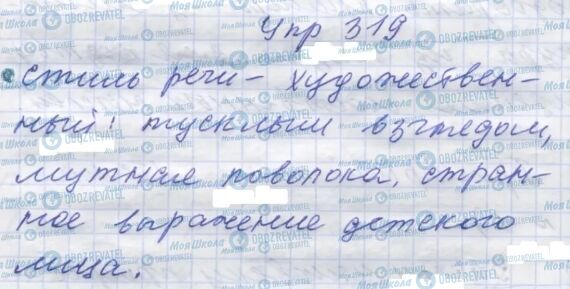 Упр 319
Стиль речи - художествен-
ный: тусклым взглядом,
мутная поволока, стран-
ное выражение детского
лица.